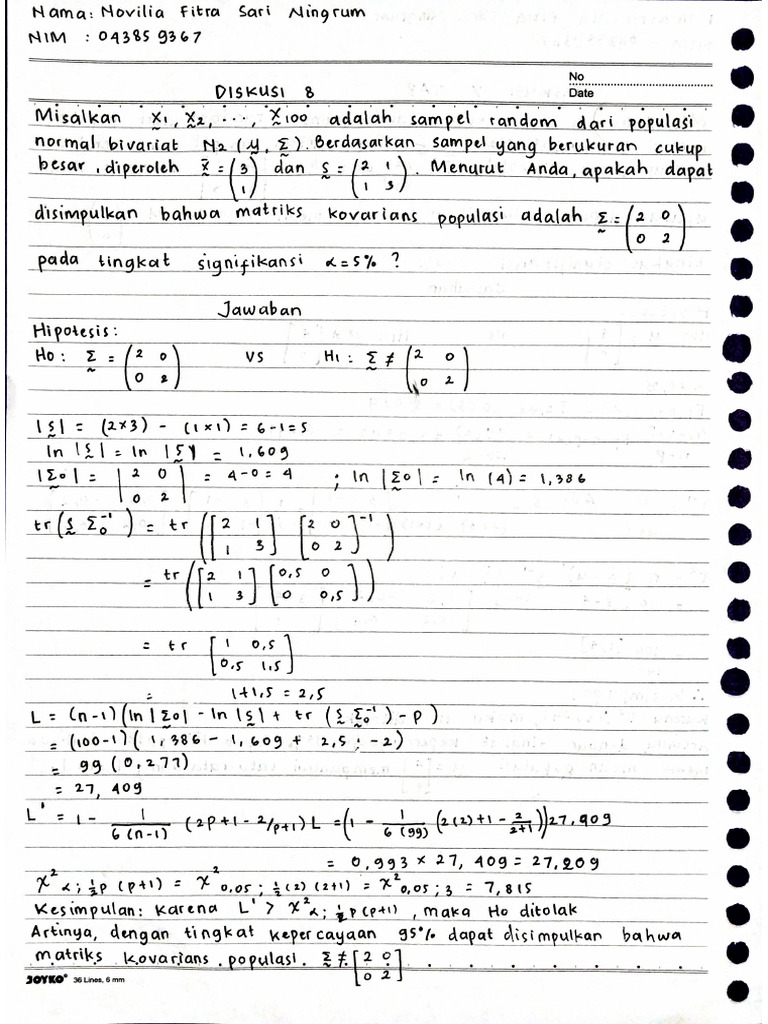 Nama: Novilia Fitra Sari Ningrum
NIM : 04385 9367
No
Date
DISKUSI 8
Misalkan X1, X2, ..., X100 adalah sampel random dari populasi
normal bivariat N2 (μ, Σ). Berdasarkan sampel yang berukuran cukup
besar, diperoleh x̄ = (3 1) dan S = (2 1 1 3). Menurut Anda, apakah dapat
disimpulkan bahwa matriks kovarians populasi adalah Σ = (2 0 0 2)
pada tingkat signifikansi α = 5% ?
Jawaban
Hipotesis:
Ho : Σ = (2 0 0 2) VS H1 : Σ ≠ (2 0 0 2)
|S| = (2×3) - (1×1) = 6-1 = 5
ln |S| = ln |5| = 1,609
|Σo| = |2 0 0 2| = 4-0 = 4 ; ln |Σo| = ln (4) = 1,386
tr(S Σo⁻¹) = tr([2 1 1 3] [2 0 0 2]⁻¹)
= tr([2 1 1 3] [0,5 0 0 0,5])
= tr [1 0,5 0,5 1,5]
= 1+1,5 = 2,5
L = (n-1)(ln |Σo| - ln |S| + tr (S Σo⁻¹) - P)
= (100-1)( 1,386 - 1,609 + 2,5 ; -2)
= 99 (0,277)
= 27,409
L' = 1 - 1/6(n-1) (2P+1 - 2/P+1) L = (1 - 1/6(99) (2(2)+1 - 2/2+1)) 27,909
= 0,993 × 27,409 = 27,209
χ² α; ½P (P+1) = χ² 0,05 ; ½(2) (2+1) = χ² 0,05 ; 3 = 7,815
Kesimpulan: Karena L' > χ² α; ½P(P+1) , maka Ho ditolak
Artinya, dengan tingkat kepercayaan 95% dapat disimpulkan bahwa
matriks kovarians populasi. Σ ≠ [2 0 0 2]
JOYKO® 36 Lines, 6 mm